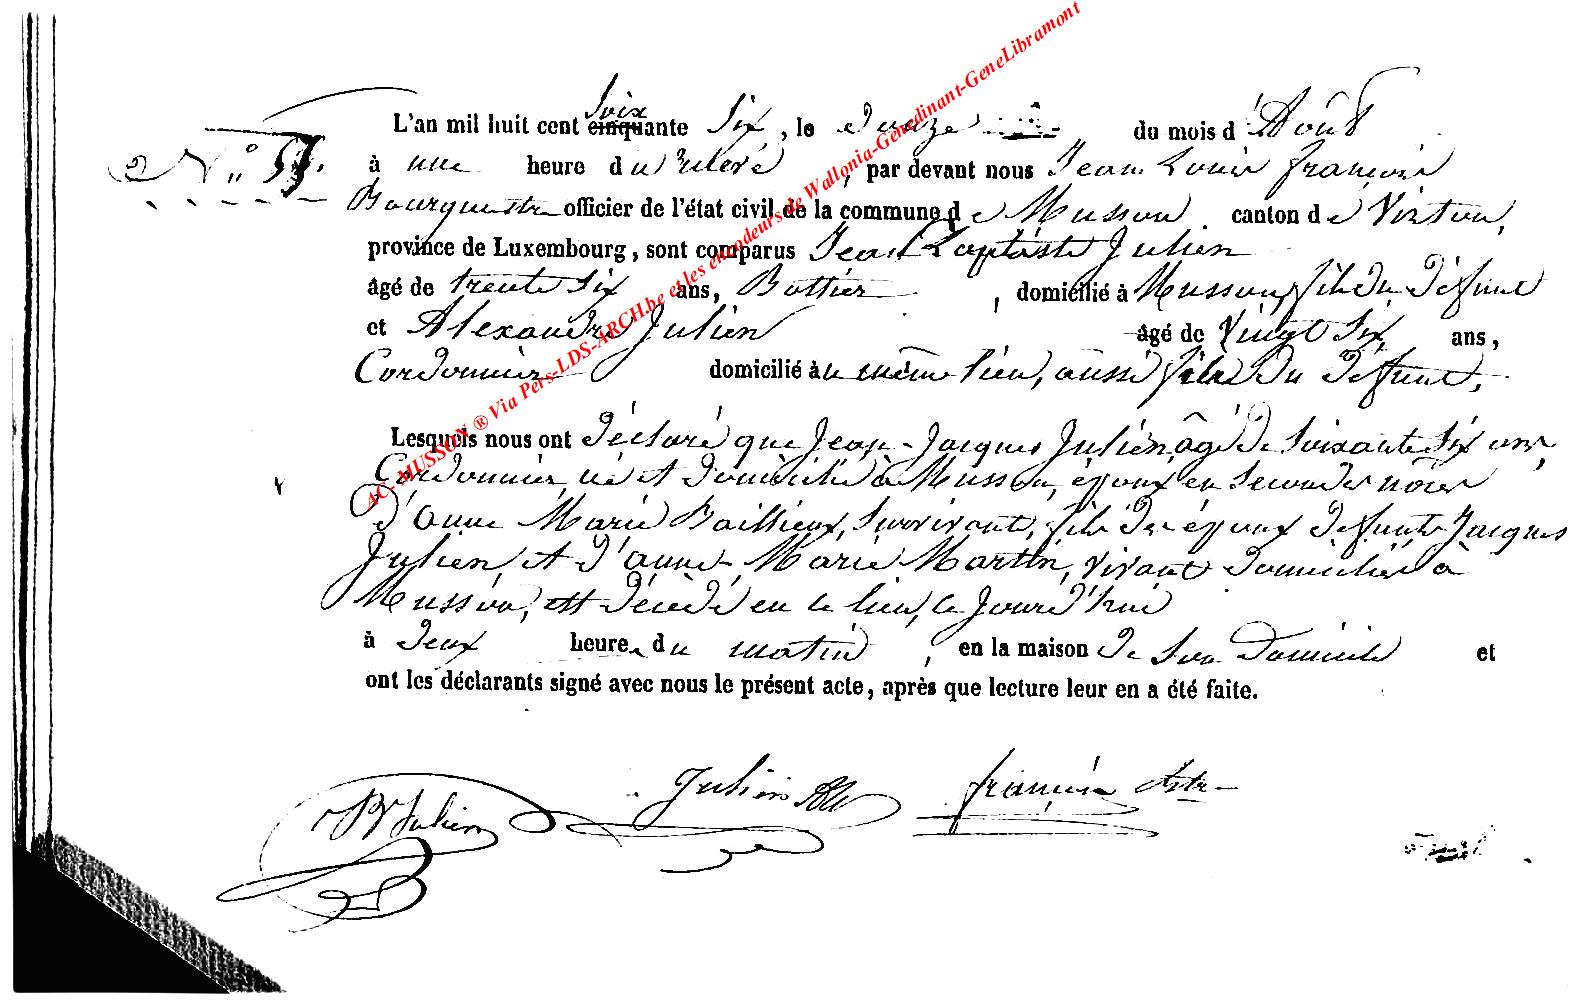 Soix
L'an mil huit cent cinquante Six, le douze du mois d'Août
N° 57.
à une heure du relevé, par devant nous Jean Louis françois
Bourguestre officier de l'état civil de la commune de Musson canton de Virton,
province de Luxembourg, sont comparus Jean Baptiste Julien
âgé de trente six ans, Bottier, domicilié à Musson, fils du défunt
et Alexandre Julien âgé de Vingt Six ans,
Cordonnier domicilié au même lieu, aussi fils du défunt,
Lesquels nous ont déclaré que Jean-Jacques Julien âgé de Soixante Six ans,
Cordonnier, né et domicilié à Musson, époux en secondes nôces
d'anne Marie Baillieux, Survivante, fils des époux défunts Jacques
Julien et d'anne-Marie Martin, vivant domiciliés à
Musson, est décédé en ce lieu, ce jourd'hui
à deux heure du matin, en la maison de son domicile et
ont les déclarants signé avec nous le présent acte, après que lecture leur en a été faite.
Julien françois
Julien
AC-MUSSON ® Via Pers-LDS-ARCH.be et les encodeurs de Wallonia-Genedinant-GeneLibramont